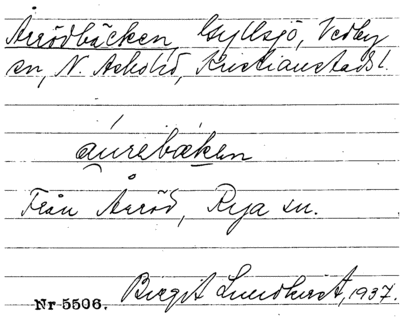 Årrödbäcken, Gyllsjö, Vedby
sn, N. Åsbohd, Kristianstads l.
áurebæken
Från Årröd, Rya sn.
Nr 5506. Birgit Lundqvist, 1937.